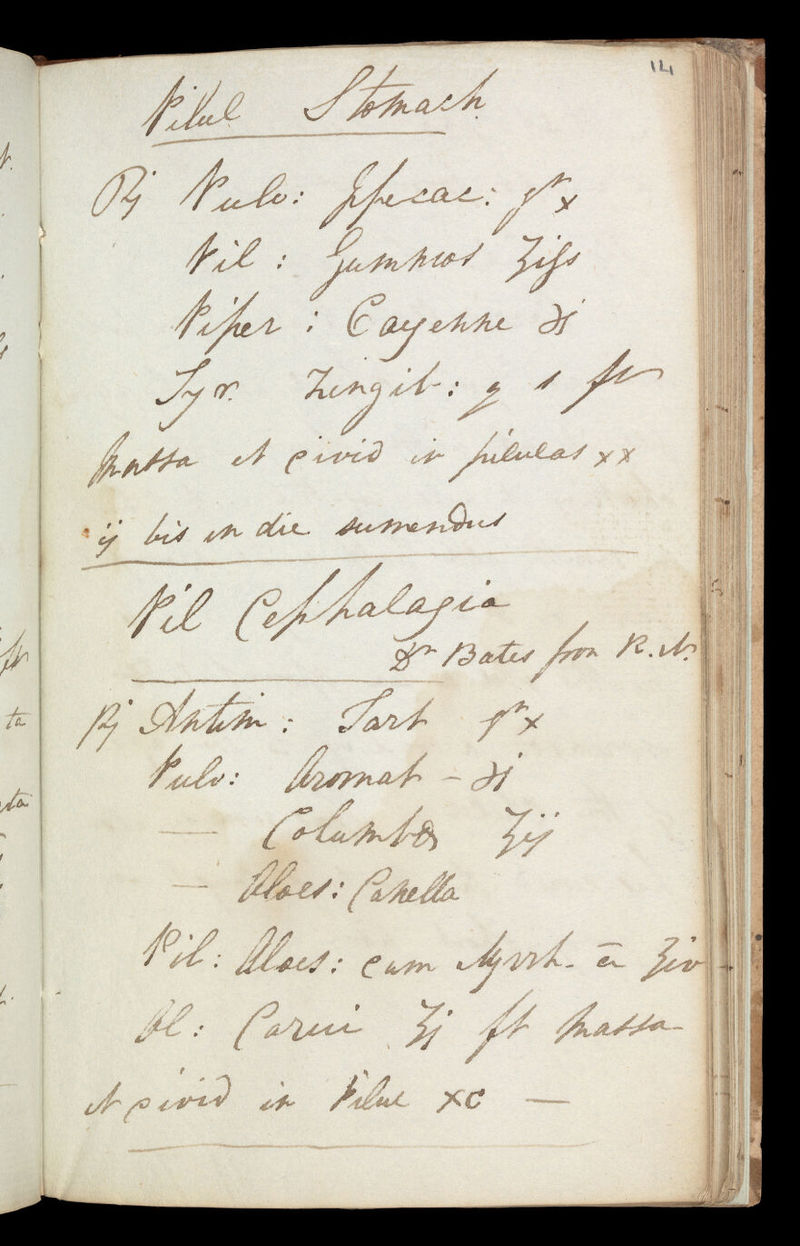 14
Pilul Stomach
℞ Pulv: Ippecac: grn x
Pil: Gummos ʒiſs
Piper: Cayenne ℈j
Syr. Zingib: q s ft
Massa et Divid in pilulas xx
ij bis in die sumendus
Pil Cephalagia
Dr Bates from R. N.
℞ Antim: Tart grn x
Pulv: Aromat - ℈j
— Columbæ ʒij
— Aloes: Canella
Pil: Aloes: cum Myrrh. a̅ ʒiv
Ol: Carui ʒj ft Massa
et Divid in Pilul xc —